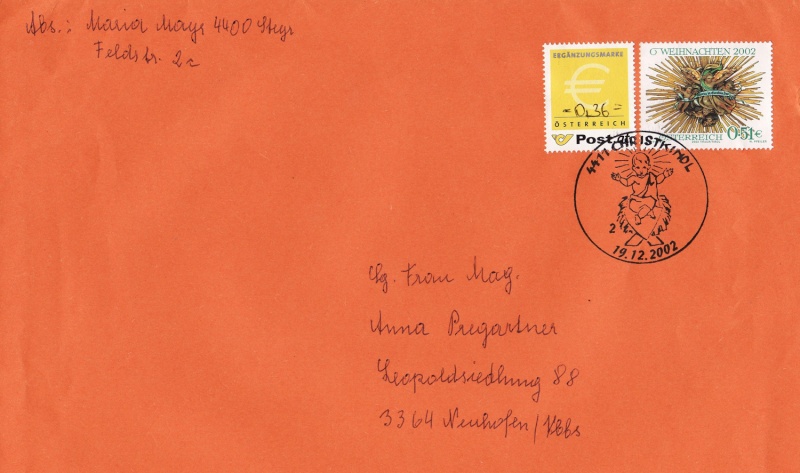 Abs.: Maria Mayr 4400 Steyr
Feldstr. 2c
ERGÄNZUNGSMARKE
€
= 0,36 =
ÖSTERREICH
Post
WEIHNACHTEN 2002
ÖSTERREICH 0.51€
4411 CHRISTKINDL
2
19.12.2002
Frau Mag.
Anna Pregartner
Leopoldsiedlung 88
3364 Neuhofen/Ybbs